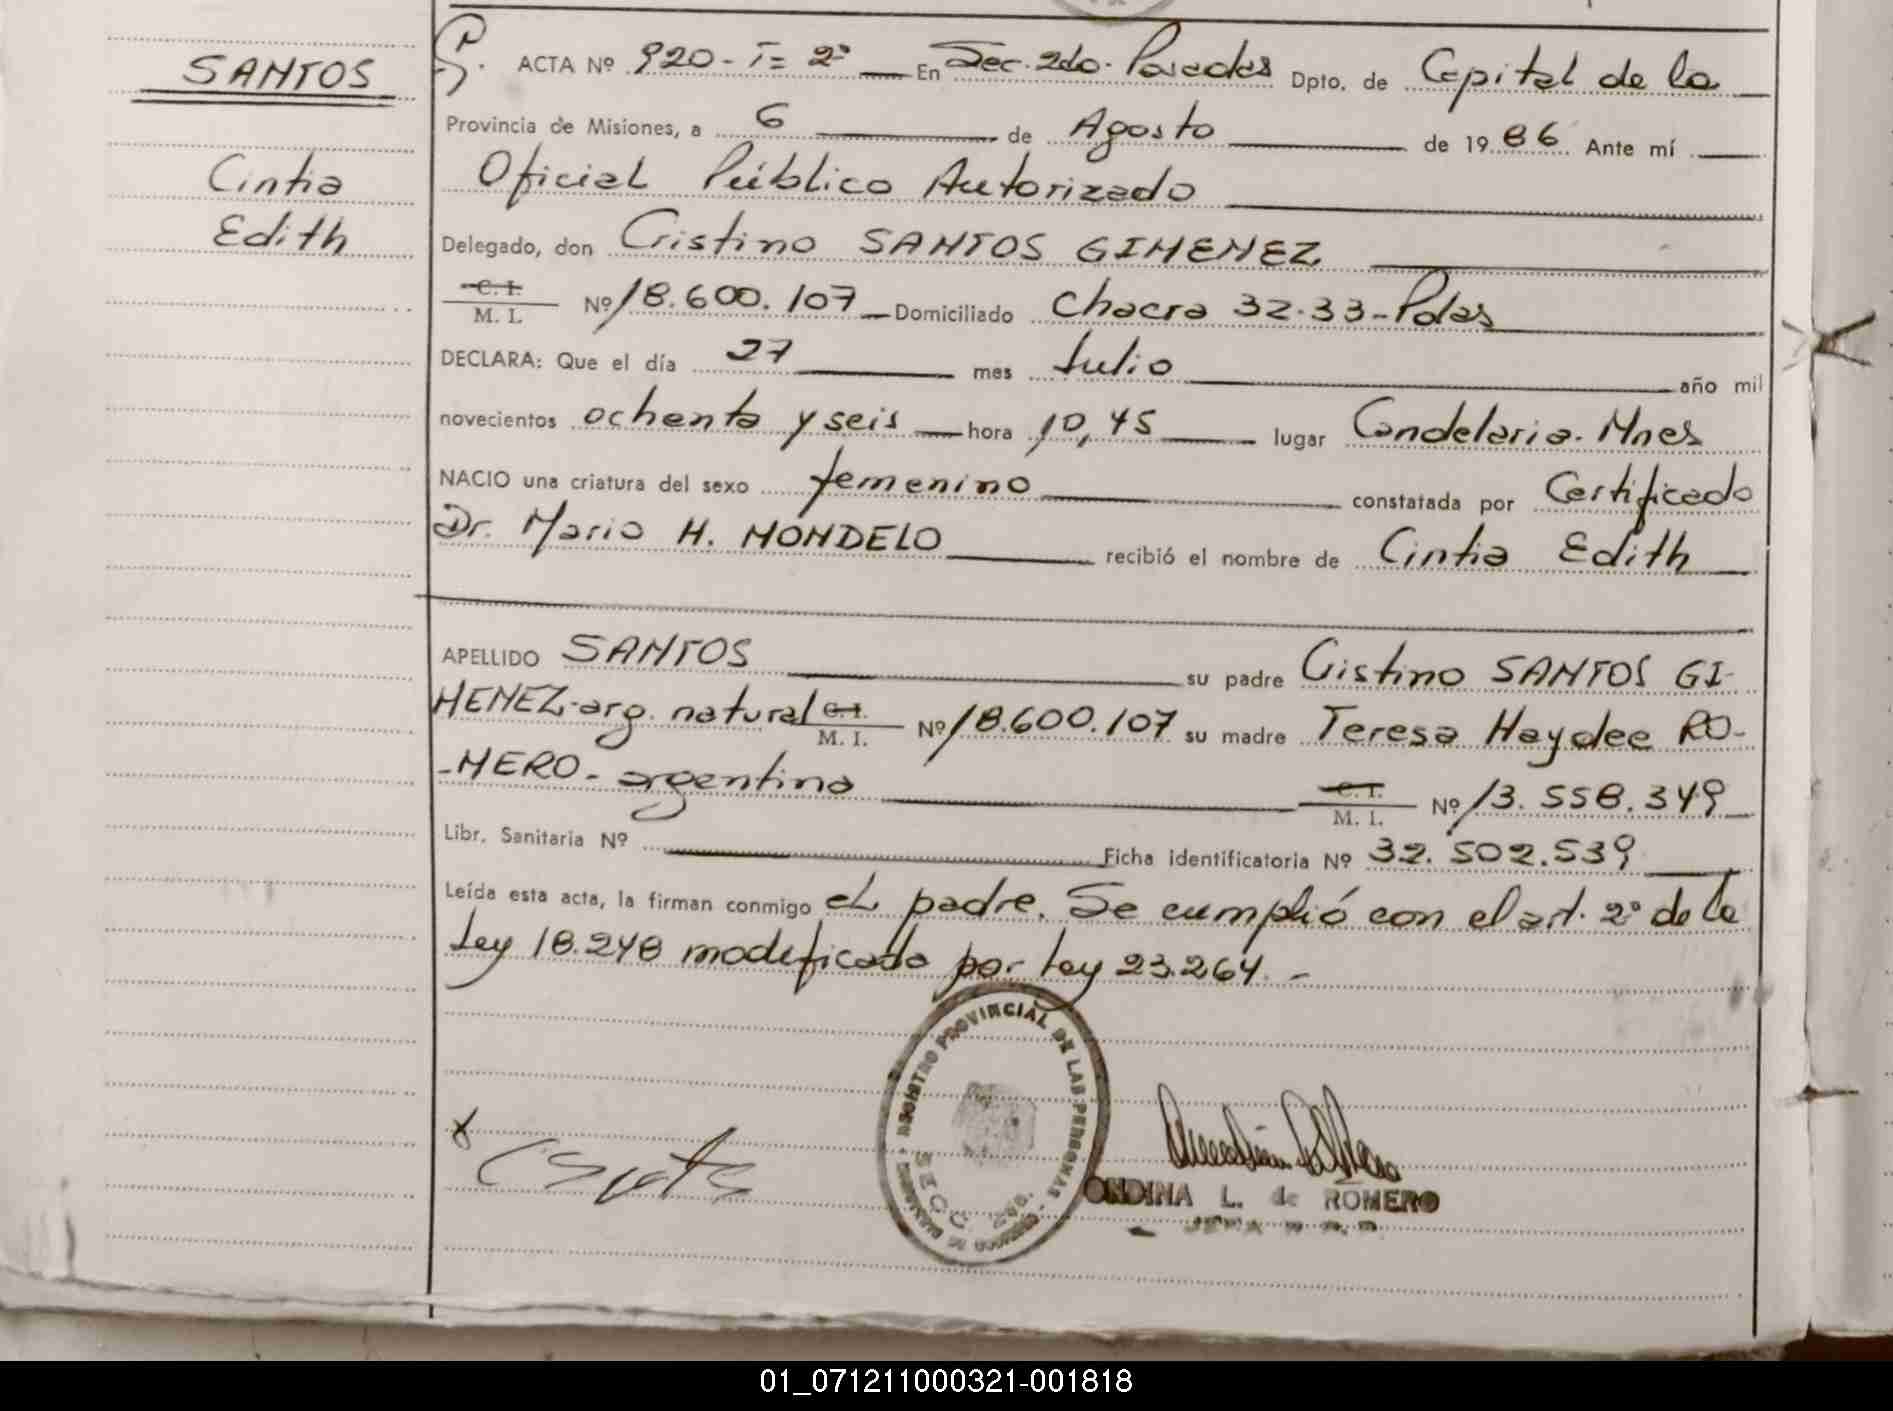 SANTOS
Cintia
Edith
ACTA Nº 920 - T= 2º En Sec. 2do. Posadas Dpto. de Capital de la
Provincia de Misiones, a 6 de Agosto de 1986 Ante mí
Oficial Público Autorizado
Delegado, don Cristino SANTOS GIMENEZ
C. I.
M. I. Nº 18.600.107 Domiciliado Chacra 32-33-Pdas
DECLARA: Que el día 27 mes Julio año mil
novecientos ochenta y seis hora 10,45 lugar Candelaria. Mnes
NACIO una criatura del sexo femenino constatada por Certificado
Dr. Mario H. MONDELO recibió el nombre de Cintia Edith
APELLIDO SANTOS su padre Cristino SANTOS GI-
MENEZ-arg. natural C. I. M. I. Nº 18.600.107 su madre Teresa Haydee RO-
-MERO- argentina C. I. M. I. Nº 13.558.349
Libr. Sanitaria Nº Ficha identificatoria Nº 32.502.539
Leída esta acta, la firman conmigo el padre. Se cumplió con el art. 2º de la
Ley 18.248 modificada por ley 23.264.-
REGISTRO PROVINCIAL DE LAS PERSONAS
SECC. 2da.
ONDINA L. de ROMERO
JEFA
01_071211000321-001818